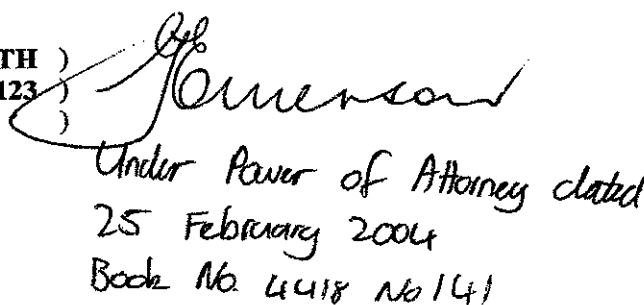 TH )
123 )
)
Emerson
Under Power of Attorney dated
25 February 2004
Book No. 4418 No 141